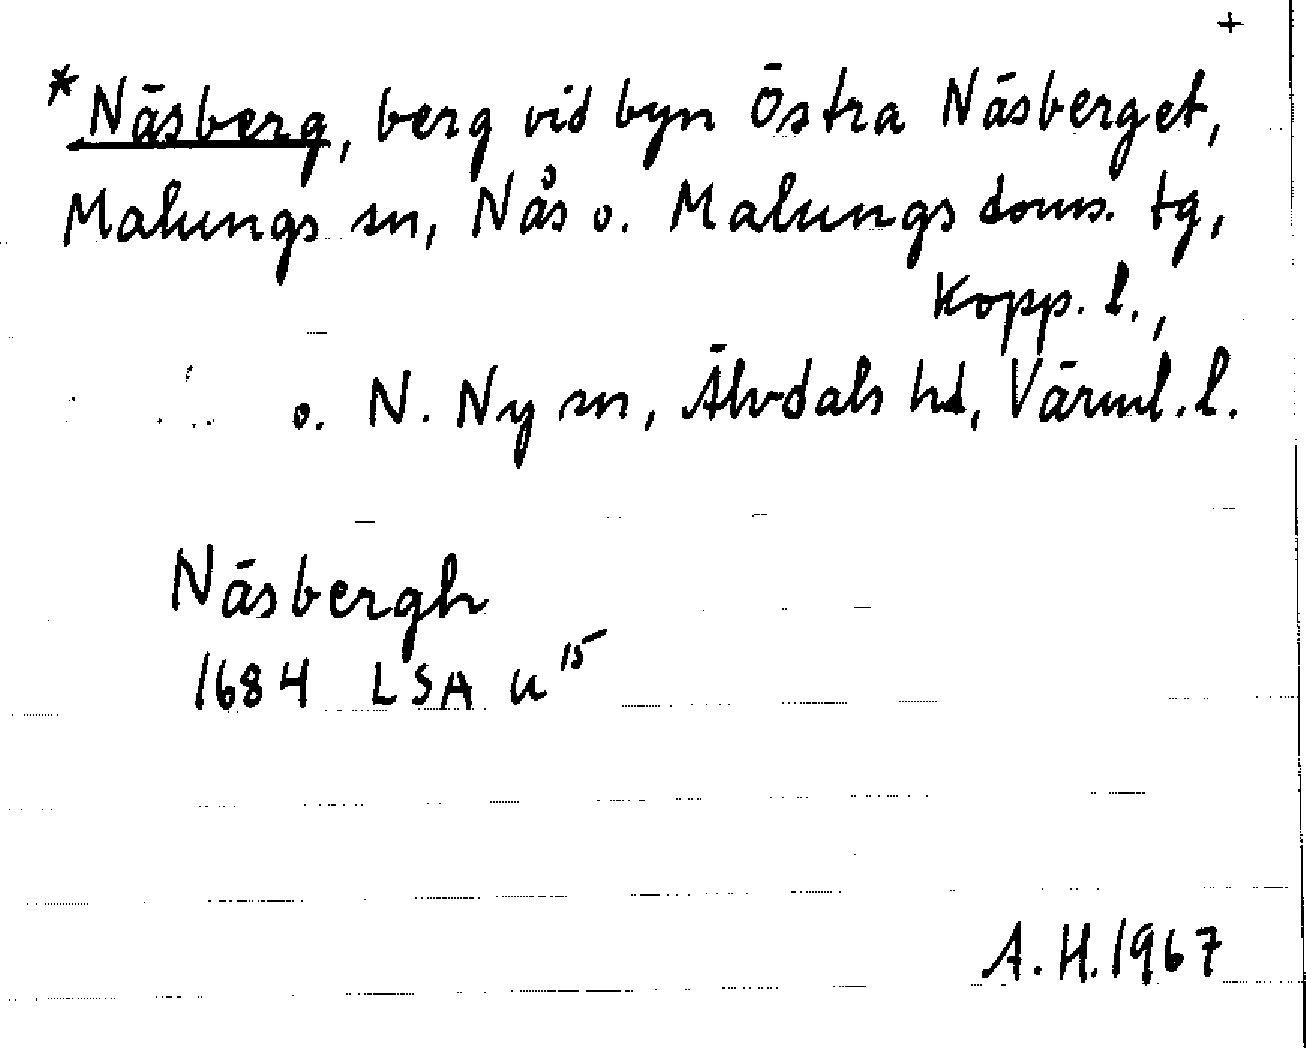 +
*Näsberg, berg vid byn Östra Näsberget,
Malungs sn, Nås o. Malungs doms. tg,
Kopp. l.,
o. N. Ny sn, Älvdals hd, Värml. l.
Näsbergh
1684 LSA u¹⁵
A. H. 1967